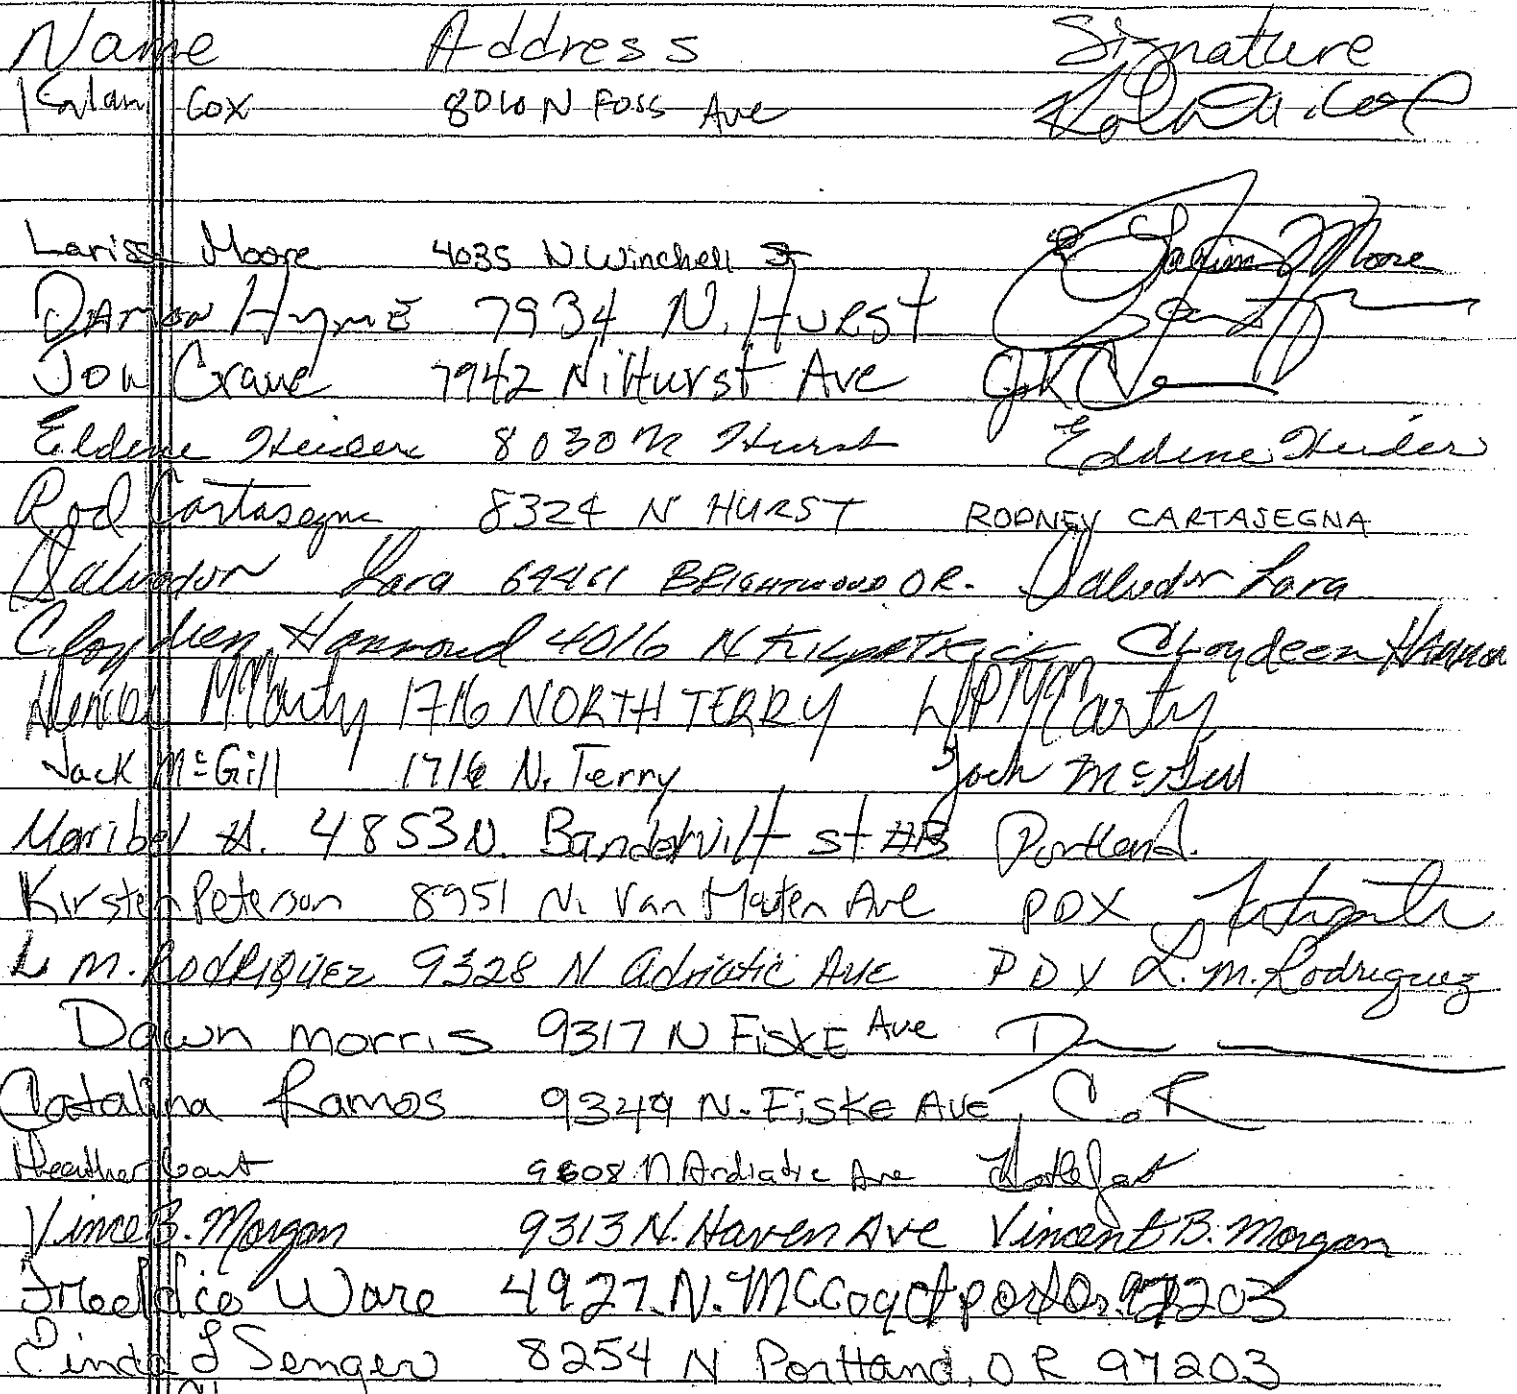 Name Address Signature
Kalani Cox 8010 N Foss Ave
Larissa Moore 4035 N Winchell St Larissa Moore
Damon Hyme 7934 N. Hurst
Jon Crane 7942 N. Hurst Ave
Eldene Heider 8030 N Hurst Eldene Heider
Rod Cartasegna 8324 N HURST RODNEY CARTASEGNA
Salvador Lara 64461 BRIGHTWOOD OR. Salvador Lara
Cloydeen Hammond 4016 N Kilpatrick Cloydeen
McCarty 1716 NORTH TERRY McCarty
Jack McGill 1716 N. Terry Jack McGill
Maribel H. 4853 N. Bandervilt st #B Portland.
Kirsten Peterson 8951 N. Van Houten Ave PDX
L M. RODRIQUEZ 9328 N Adriatic AVE PDX L. M. Rodriguez
Dawn morris 9317 N FiskE Ave
Catalina Ramos 9349 N. Fiske AVE, C. R
Heather Gant 9608 N Ardiatic Ave
Vince B. Morgan 9313 N. Haven Ave Vincent B. Morgan
Ware 4927 N. McCoy Ct port Or. 97203
Cinda L Senger 8254 N Portland, OR 97203